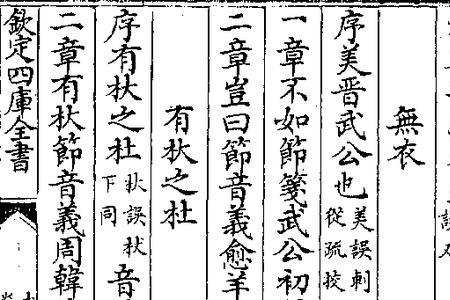 無衣
序美晋武公也美誤刺從疏挍
一章不如節箋武公初
二章豈曰節音義愈羊
有杕之杜
序有杕之杜杕誤杖下同音
二章有杕節音義周韓
欽定四庫全書